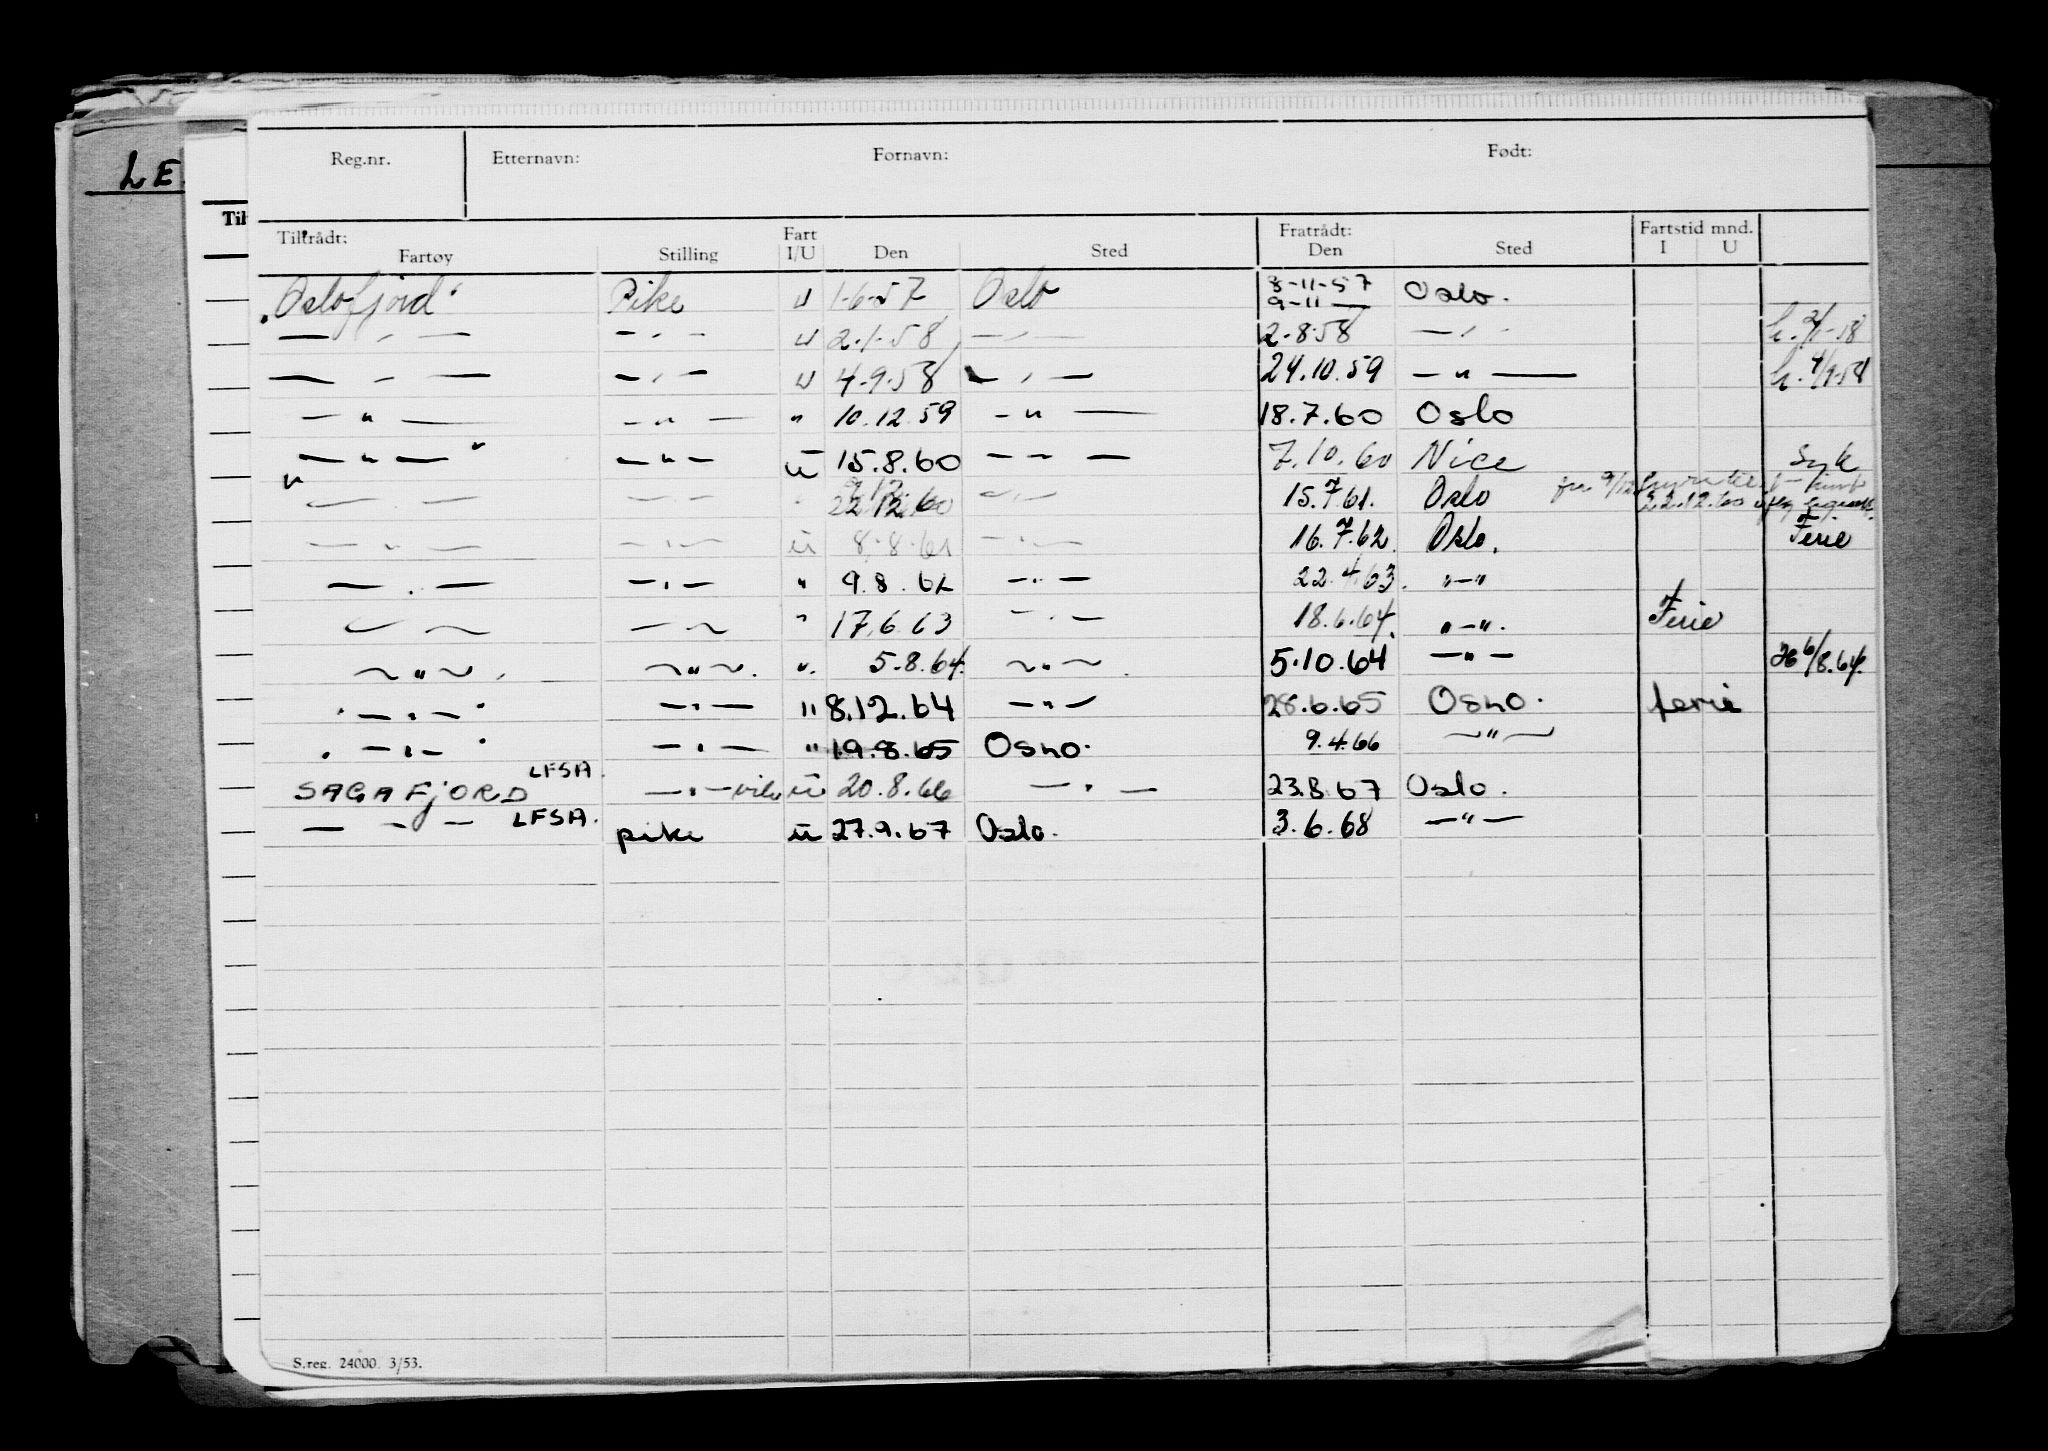 LE
Reg.nr. Etternavn: Fornavn: Født:
Til
Tiltrådt: Fart Fratrådt: Fartstid mnd.
Fartøy Stilling I/U Den Sted Den Sted I U
"Oslofjord" Pike U 1-6-57 Oslo 8-11-57 Oslo.
9-11 —
— " — — " — U 2-1-58 — " — 2-8-58 — " — h. 2/1-58
— " — — " — U 4-9-58 — " — 24.10.59 — " — h. 4/9-58
— " — — " — " 10.12.59 — " — 18.7.60 Oslo
" — " — " — " — U 15.8.60 — " — 7.10.60 Nice Syk
— " — — " — " 22.12.60 — " — 15.7.61. Oslo fra 9/12 hyre til 22.12.60
— " — — " — U 8.8.61 — " — 16.7.62. Oslo. Ferie
— " — — " — " 9.8.62 — " — 22.4.63. " — "
— " — — " — " 17.6.63 — " — 18.6.64. " — ". Ferie
— " — — " — ". 5.8.64. — " — 5.10.64 — " — 6/8.64.
" — " — " — " — " 8.12.64 — " — 28.6.65 Osno. ferie
" — " — " — " — " 19.8.65 Osno. 9.4.66 — " —
SAGAFJORD LFSA. — " — U 20.8.66 — " — 23.8.67 Oslo.
— " — LFSA. pike U 27.9.67 Oslo. 3.6.68 — " —
S.reg. 24000. 3/53.